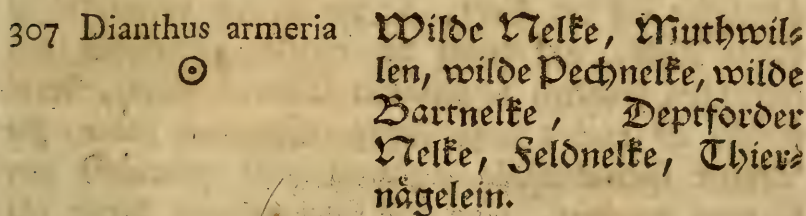 307 Dianthus armeria Wilde Nelke, Muthwil⸗
☉ len, wilde Pechnelke, wilde
Bartnelke, Deptforder
Nelke, Feldnelke, Thier⸗
nägelein.